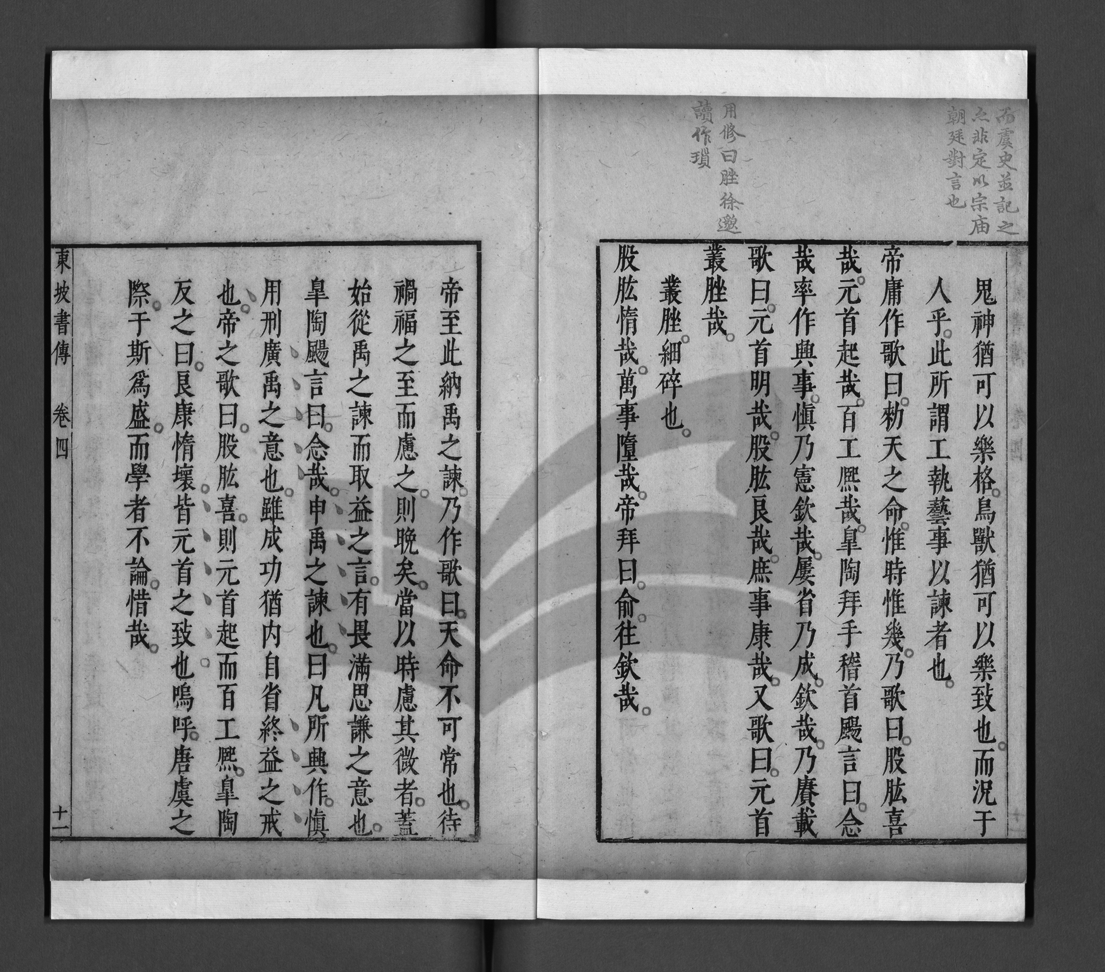 而虞史並記之
之非定以宗庙
朝廷對言也
用修曰脞徐邈
讀作瑣
鬼神猶可以樂格。鳥獸猶可以樂致也。而況于
人乎。此所謂工執藝事以諫者也。
帝庸作歌曰。勑天之命。惟時惟幾。乃歌曰。股肱喜
哉。元首起哉。百工熈哉。臯陶拜手稽首颺言曰。念
哉。率作興事。愼乃憲欽哉。屢省乃成。欽哉。乃賡載
歌曰。元首明哉。股肱良哉。庶事康哉。又歌曰。元首
叢脞哉。
叢脞。細碎也。
股肱惰哉。萬事墮哉。帝拜曰。俞。往欽哉。
帝至此納禹之諫。乃作歌曰。天命不可常也。待
禍福之至而慮之。則晚矣。當以時慮其微者。蓋
始從禹之諫而取益之言。有畏滿思謙之意也。
臯陶颺言曰。念哉。申禹之諫也。曰凡所興作。愼
用刑廣禹之意也。雖成功猶内自省終益之戒
也。帝之歌曰。股肱喜。則元首起而百工熈。臯陶
反之曰。良康惰壞。皆元首之致也。嗚呼。唐虞之
際。于斯爲盛。而學者不論。惜哉。
東坡書傳 卷四 十一